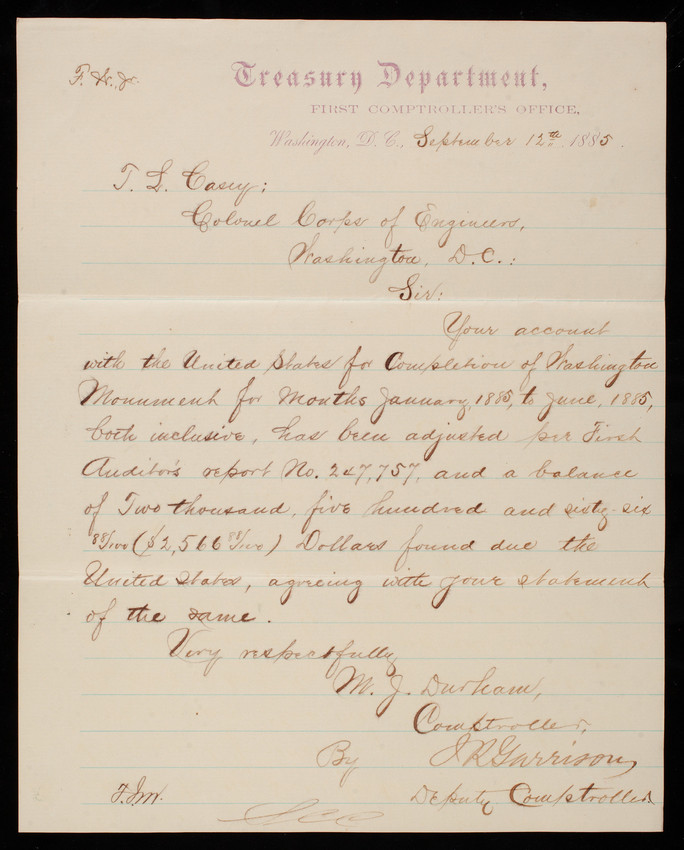 Treasury Department,
FIRST COMPTROLLER'S OFFICE,
Washington, D.C., September 12th, 1885.
T. L. Casey;
Colonel Corps of Engineers,
Washington, D.C.:
Sir:
Your account
with the United States for Completion of Washington
Monument for months January, 1885, to June, 1885,
both inclusive, has been adjusted per First
Auditor's report No. 247,757, and a balance
of Two thousand, five hundred and sixty-six
88/100 ($2,566 88/100) Dollars found due the
United States, agreeing with your statement
of the same.
Very respectfully
M. J. Durham,
Comptroller,
By J R Garrison,
Deputy Comptroller